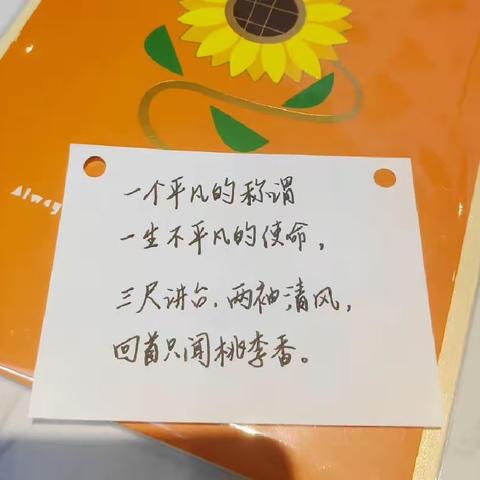 Alway
一个平凡的称谓
一生不平凡的使命，
三尺讲台，两袖清风，
回首只闻桃李香。